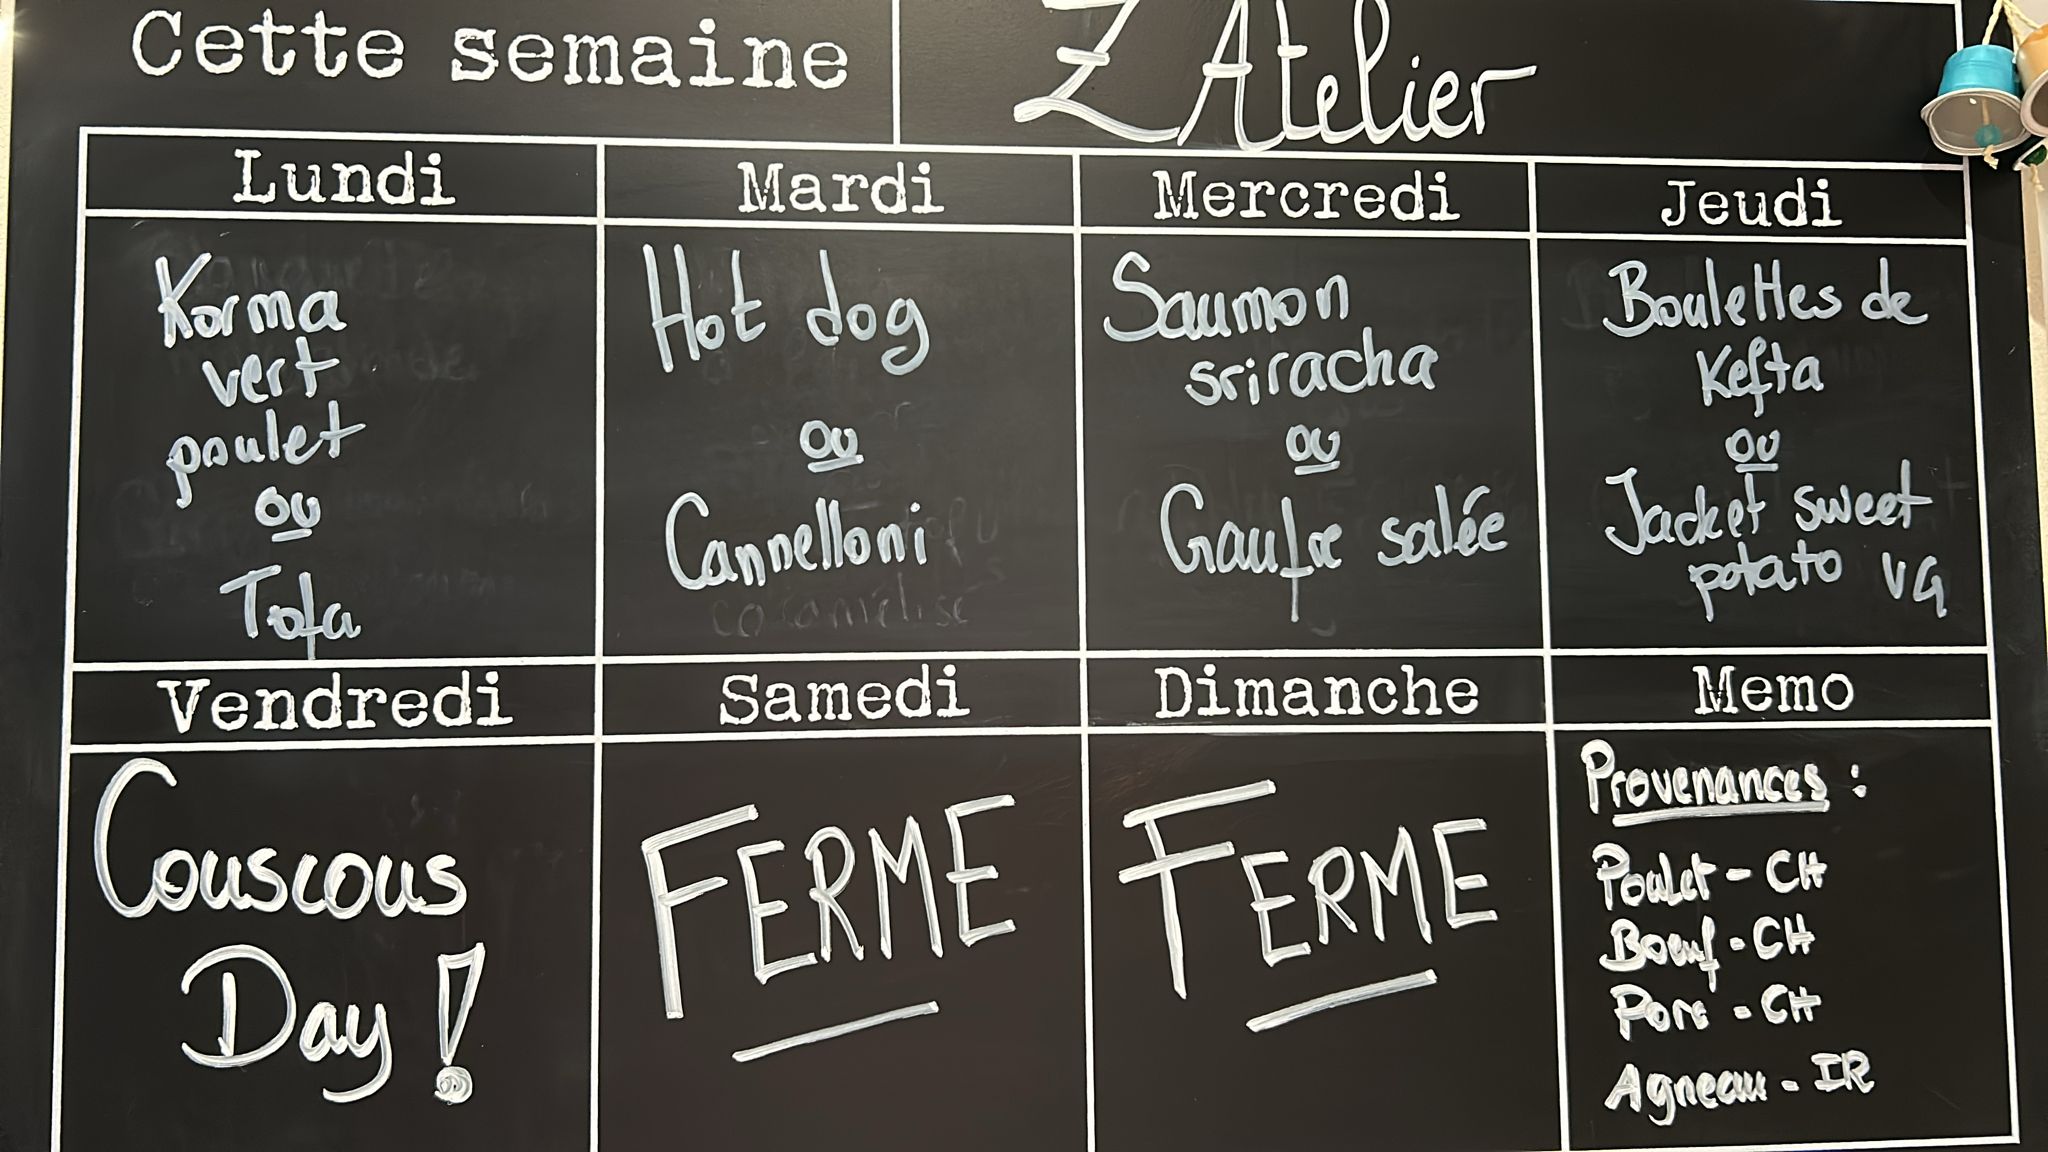 Cette semaine
ZAtelier
Lundi
Korma
vert
poulet
ou
Tofu
Mardi
Hot dog
ou
Cannelloni
Mercredi
Saumon
sriracha
ou
Gaufre salée
Jeudi
Boulettes de
Kefta
ou
Jacket sweet
potato VG
Vendredi
Couscous
Day !
Samedi
FERME
Dimanche
FERME
Memo
Provenances :
Poulet - CH
Boeuf - CH
Porc - CH
Agneau - IR